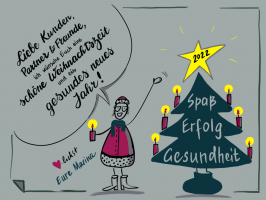 Liebe Kunden,
Partner & Freunde,
ich wünsche Euch eine
schöne Weihnachtszeit
und ein
gesundes neues
Jahr!
2022
Spaß
Erfolg
Gesundheit
Eure Marina